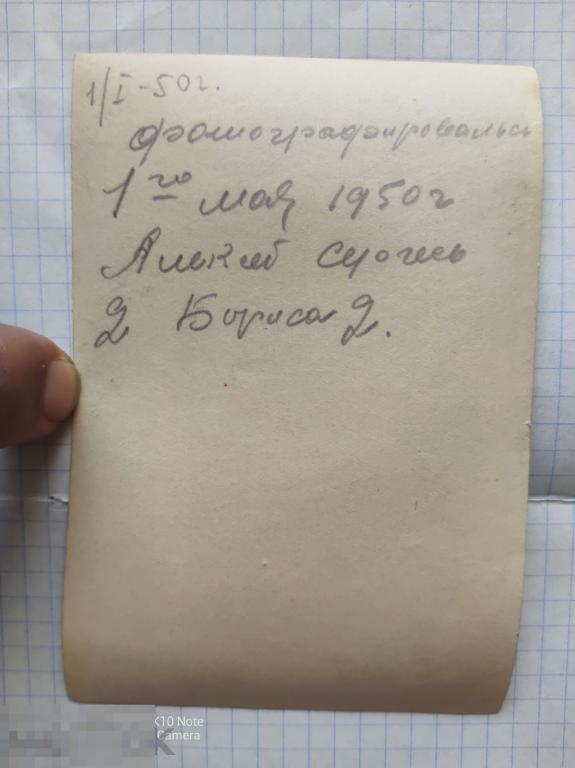 1/I-50г.
фотографировались
1го мая 1950г
Алексей
2 Бориса 2.
K10 Note
Camera